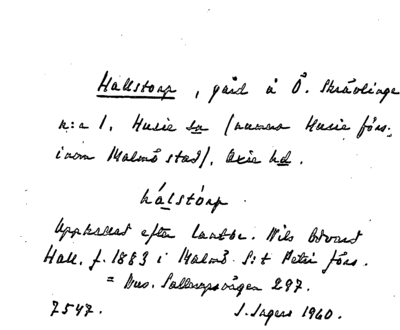 Hallstorp, gård å Ö. Skrävlinge
n:a 1, Husie sn (numera Husie förs.
inom Malmö stad), Oxie hd.
hálstórp
Uppkallad efter lantbr. Nils Edvard
Hall, f. 1883 i Malmö S:t Petri förs.
= Hus. Sallerupsvägen 297.
7547. S. Ingers 1960.